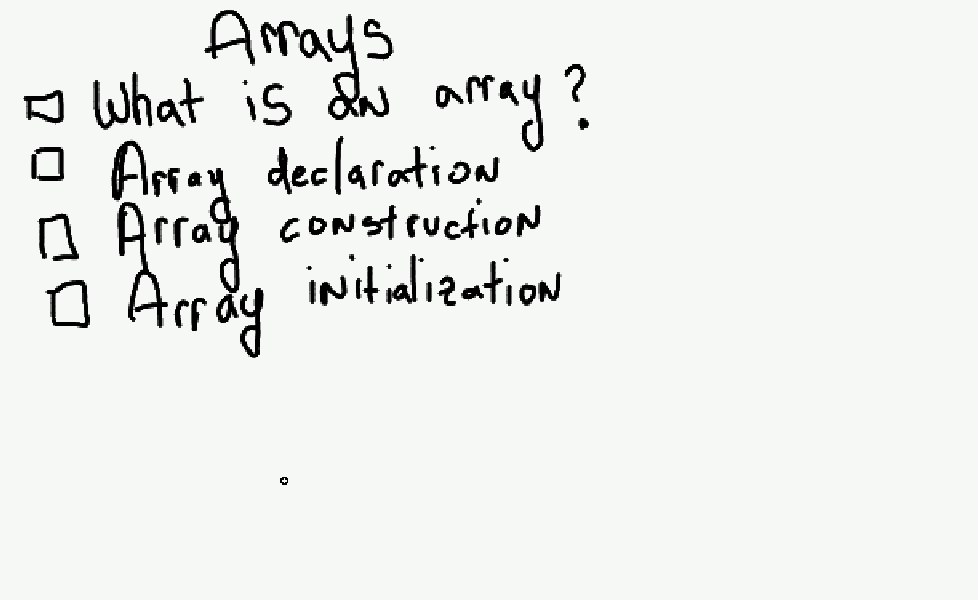 Arrays
What is an array?
Array declaration
Array construction
Array initialization